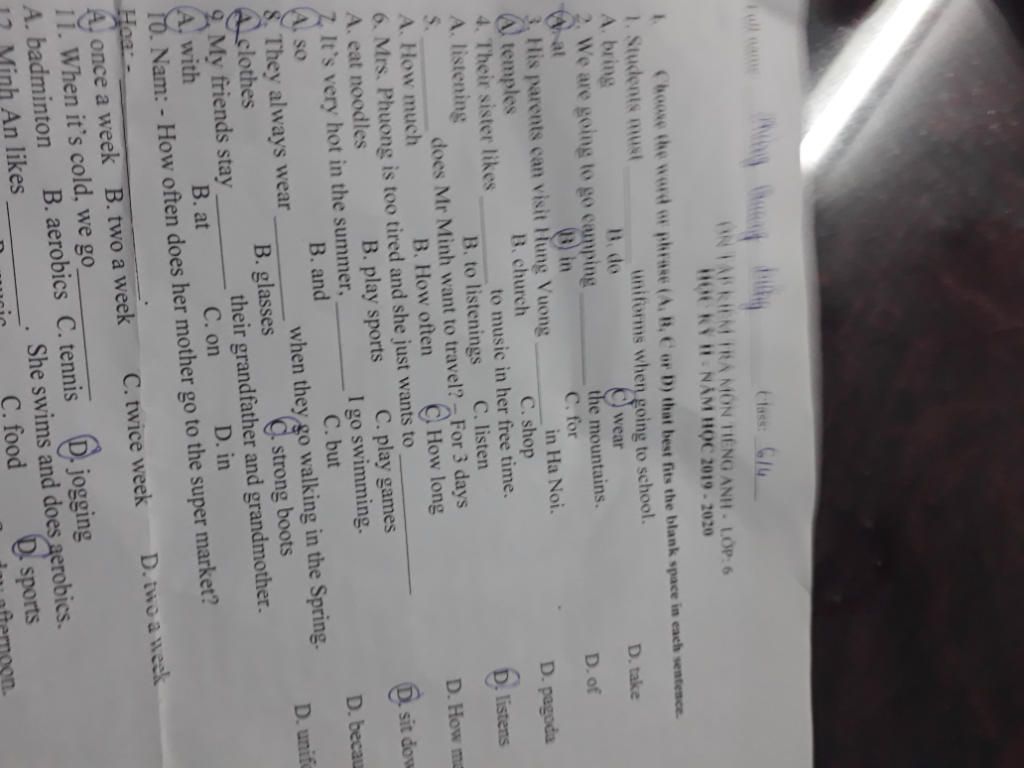 Full name Class: 6/4
ÔN TẬP KIỂM TRA MÔN TIẾNG ANH - LỚP: 6
HỌC KỲ II - NĂM HỌC 2019 - 2020
I. Choose the word or phrase (A, B, C or D) that best fits the blank space in each sentence.
1. Students must ______ uniforms when going to school.
A. bring B. do C. wear D. take
2. We are going to go camping ______ the mountains.
A. at B. in C. for D. of
3. His parents can visit Hung Vuong ______ in Ha Noi.
A. temples B. church C. shop D. pagoda
4. Their sister likes ______ to music in her free time.
A. listening B. to listenings C. listen D. listens
5. ______ does Mr Minh want to travel? – For 3 days
A. How much B. How often C. How long D. How
6. Mrs. Phuong is too tired and she just wants to ______
A. eat noodles B. play sports C. play games D. sit dow
7. It's very hot in the summer, ______ I go swimming.
A. so B. and C. but D. becau
8. They always wear ______ when they go walking in the Spring.
A. clothes B. glasses C. strong boots D. unif
9. My friends stay ______ their grandfather and grandmother.
A. with B. at C. on D. in
10. Nam: - How often does her mother go to the super market?
Hoa: - ______.
A. once a week B. two a week C. twice week D. two a week
11. When it's cold, we go ______
A. badminton B. aerobics C. tennis D. jogging
12. Minh An likes ______. She swims and does aerobics.
C. food D. sports
afternoon.